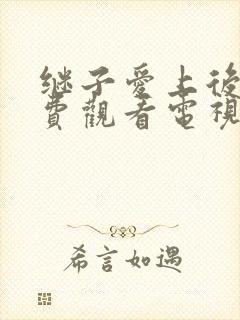 继子愛上後
費觀看電視
希言如遇